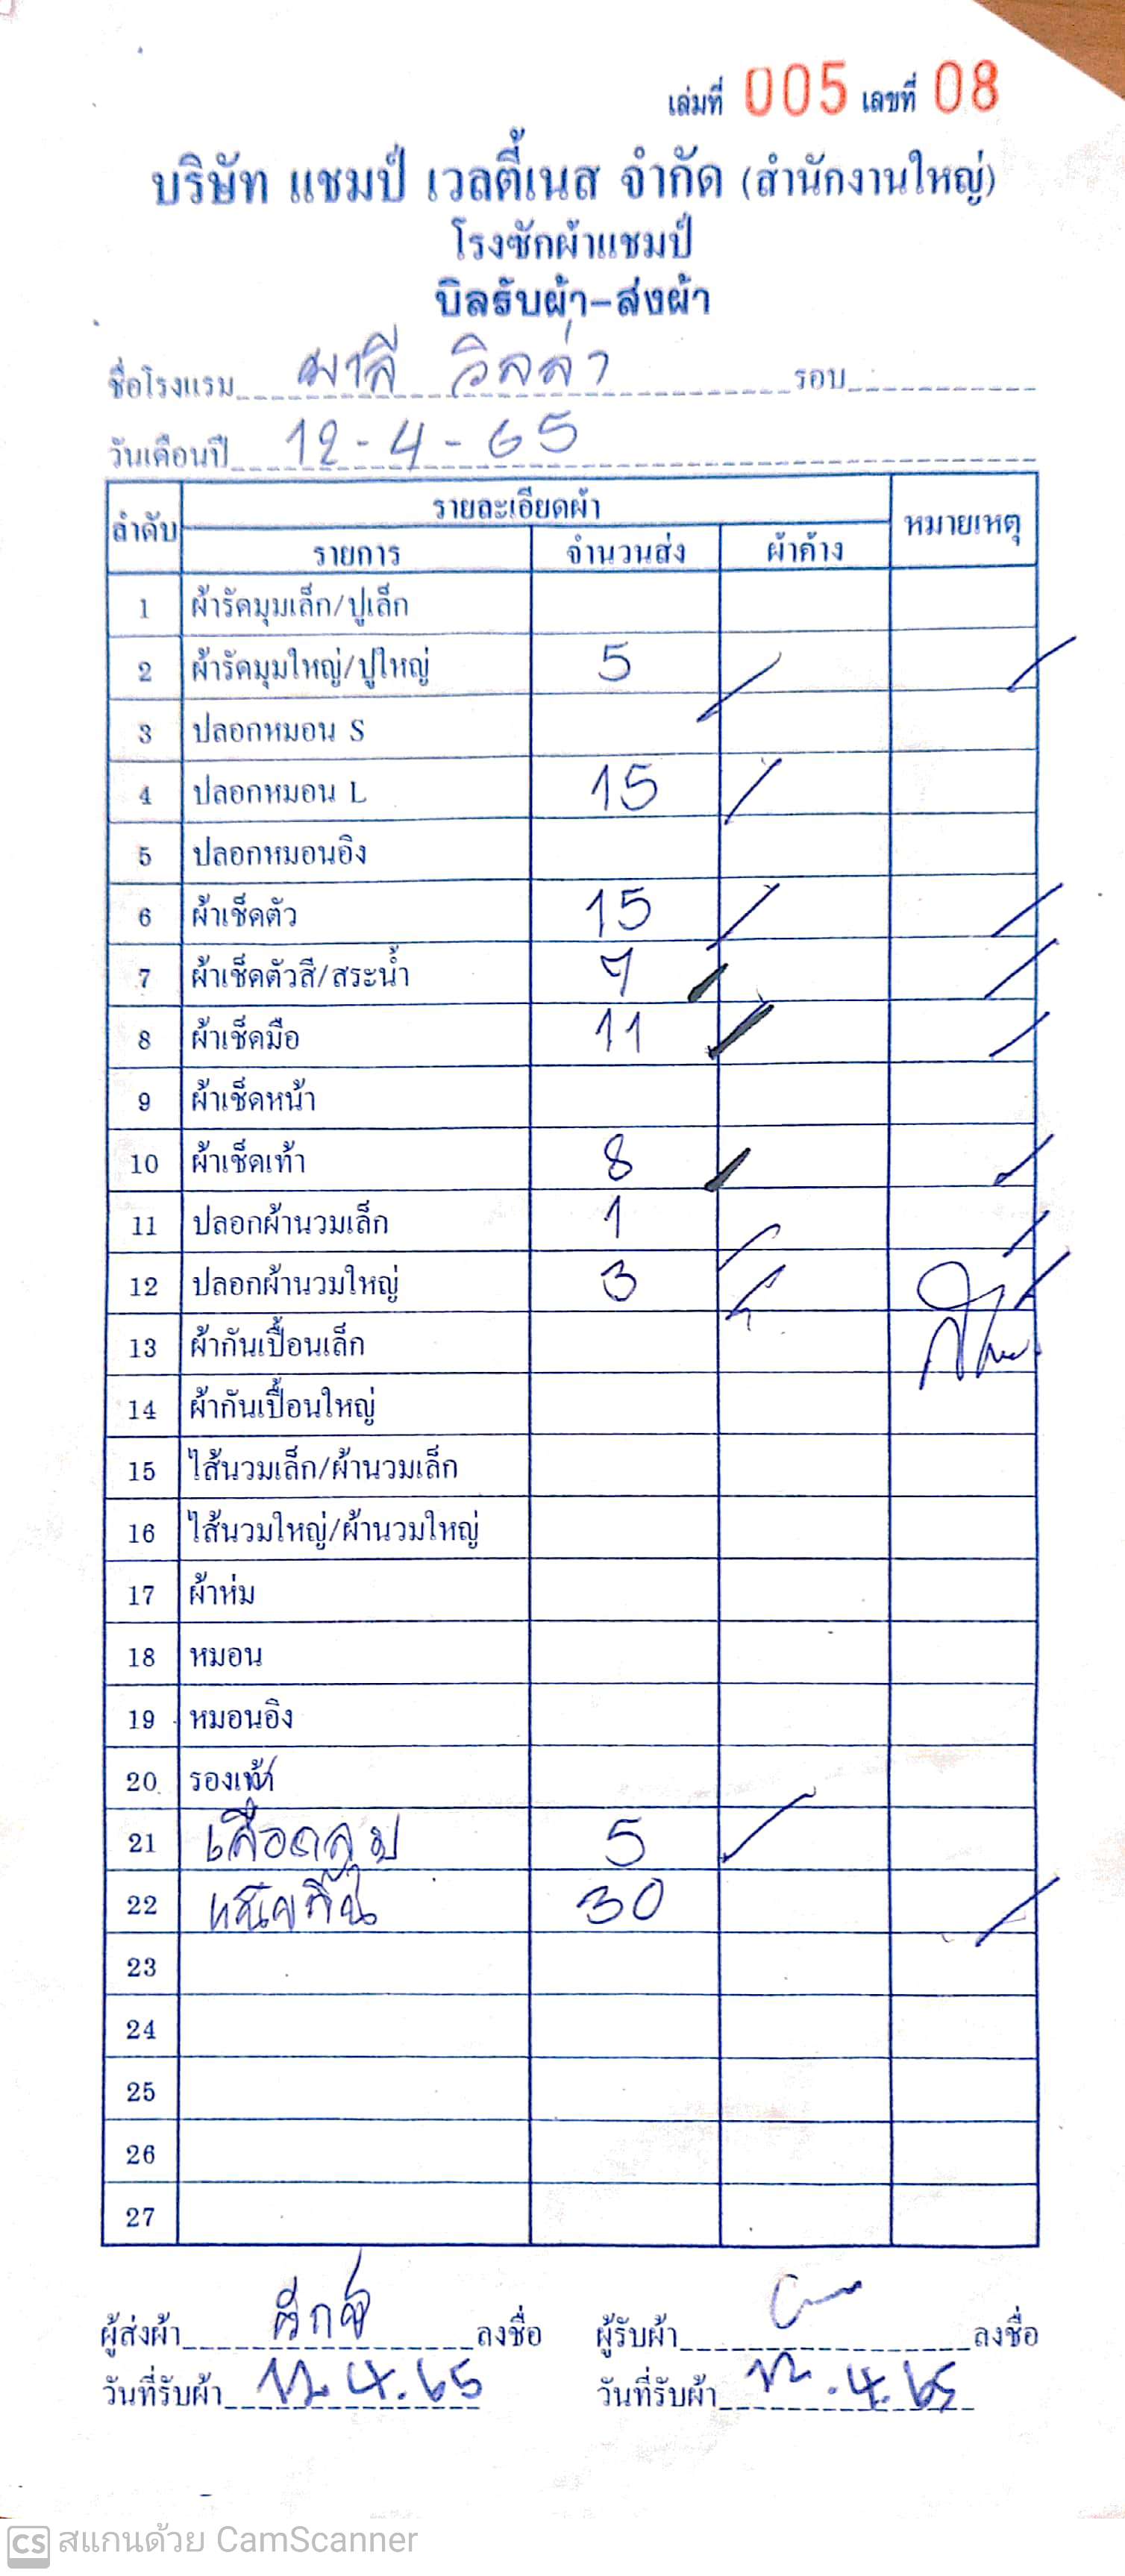 เล่มที่ 005 เลขที่ 08
บริษัท แชมป์ เวลตี้เนส จำกัด (สำนักงานใหญ่)
โรงซักผ้าแชมป์
บิลรับผ้า-ส่งผ้า
ชื่อโรงแรม มาลี วิลล่า รอบ
วันเดือนปี 12-4-65
ลำดับ รายละเอียดผ้า หมายเหตุ
รายการ จำนวนส่ง ผ้าค้าง
1 ผ้ารัดมุมเล็ก/ปูเล็ก
2 ผ้ารัดมุมใหญ่/ปูใหญ่ 5
3 ปลอกหมอน S
4 ปลอกหมอน L 15
5 ปลอกหมอนอิง
6 ผ้าเช็ดตัว 15
7 ผ้าเช็ดตัวสี/สระน้ำ 7
8 ผ้าเช็ดมือ 11
9 ผ้าเช็ดหน้า
10 ผ้าเช็ดเท้า 8
11 ปลอกผ้านวมเล็ก 1
12 ปลอกผ้านวมใหญ่ 3
13 ผ้ากันเปื้อนเล็ก
14 ผ้ากันเปื้อนใหญ่
15 ไส้นวมเล็ก/ผ้านวมเล็ก
16 ไส้นวมใหญ่/ผ้านวมใหญ่
17 ผ้าห่ม
18 หมอน
19 หมอนอิง
20 รองเท้า
21 เสื้อคลุม 5
22 30
23
24
25
26
27
ผู้ส่งผ้า ลงชื่อ ผู้รับผ้า ลงชื่อ
วันที่รับผ้า 12.4.65 วันที่รับผ้า 12.4.65
CS สแกนด้วย CamScanner